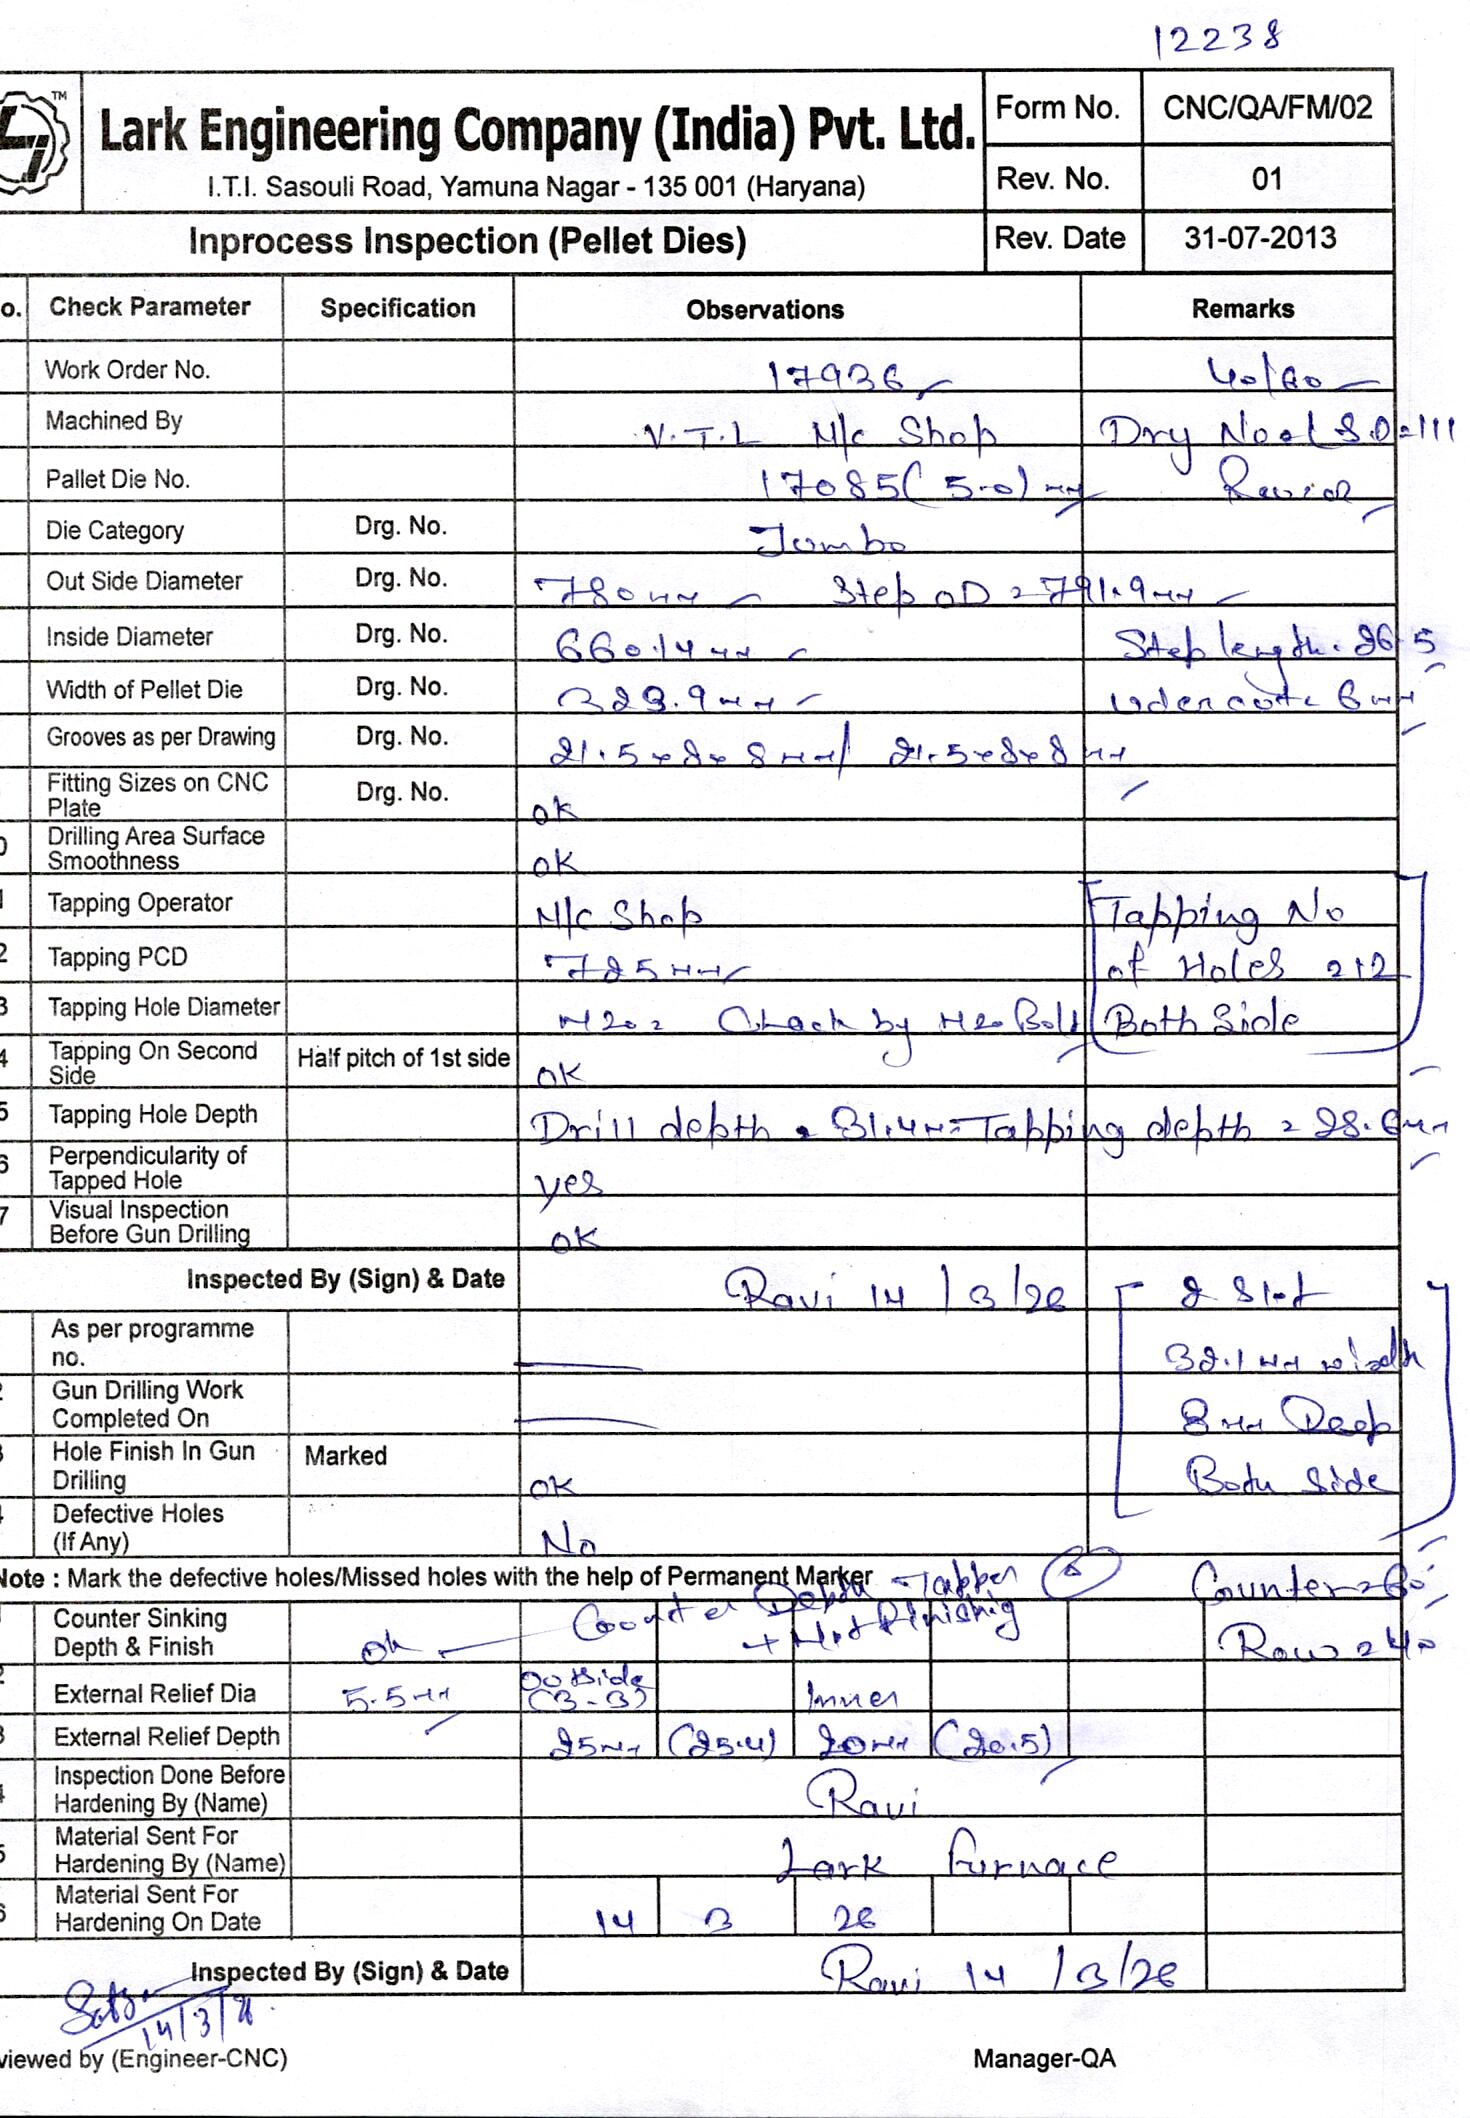 12238
TM
Lark Engineering Company (India) Pvt. Ltd.
I.T.I. Sasouli Road, Yamuna Nagar - 135 001 (Haryana)
Form No. CNC/QA/FM/02
Rev. No. 01
Inprocess Inspection (Pellet Dies) Rev. Date 31-07-2013
o. Check Parameter Specification Observations Remarks
Work Order No. 17936 40/60
Machined By V.T.L M/c Shop Dry
Pallet Die No. 17085 (5.0) mm
Die Category Drg. No. Jumbo
Out Side Diameter Drg. No. 780 mm Step OD = 791.9 mm
Inside Diameter Drg. No. 660.14 mm Step length = 26.5
Width of Pellet Die Drg. No. 323.9 mm 6 mm
Grooves as per Drawing Drg. No. 21.5 x 8 x 8 mm / 21.5 x 8 x 8 mm
Fitting Sizes on CNC
Plate Drg. No. ok
0 Drilling Area Surface
Smoothness ok
1 Tapping Operator M/c Shop Tapping No
2 Tapping PCD 725 mm of Holes = 12
3 Tapping Hole Diameter M20 = Check by M20 Bolt Both Side
4 Tapping On Second
Side Half pitch of 1st side ok
5 Tapping Hole Depth Drill depth = 31.4 mm Tapping depth = 28.6 mm
6 Perpendicularity of
Tapped Hole yes
7 Visual Inspection
Before Gun Drilling ok
Inspected By (Sign) & Date Ravi 14/3/26 2 Slot
As per programme
no. 32.1 mm width
2 Gun Drilling Work
Completed On 8 mm Deep
3 Hole Finish In Gun
Drilling Marked ok Both Side
4 Defective Holes
(If Any) No
Note : Mark the defective holes/Missed holes with the help of Permanent Marker
Counter Depth Tapper Counter = 60
1 Counter Sinking
Depth & Finish ok + Not Finishing Row = 40
2 External Relief Dia 5.5 mm Outside (3-3) Inner
3 External Relief Depth 25 mm (25.4) 20 mm (20.5)
4 Inspection Done Before
Hardening By (Name) Ravi
5 Material Sent For
Hardening By (Name) Lark Furnace
6 Material Sent For
Hardening On Date 14 3 26
Inspected By (Sign) & Date Ravi 14/3/26
14/3/26
viewed by (Engineer-CNC) Manager-QA